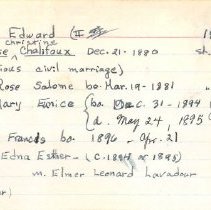 Edward (II 19
Christine
se Chalifaux Dec. 21-1880 st.
ious civil marriage)
Rose Salome bo. Mar. 19-1881
Mary Eunice {bo. Dec. 31-1894
{d. May 24, 1895
Francis bo. 1896 - Apr. 21
Edna Esther - (C. 1894 or 1898)
m. Elmer Leonard Lavadour
er)